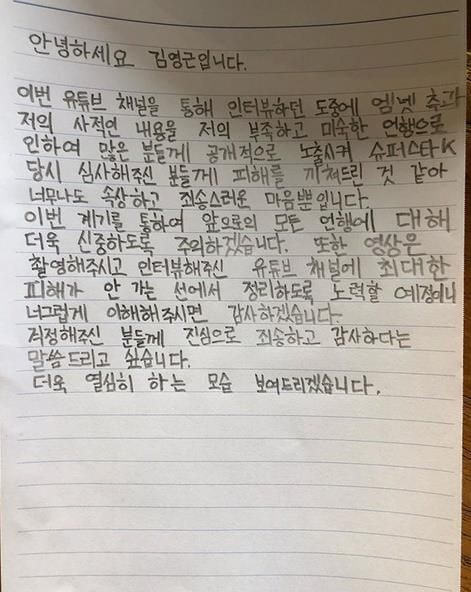 안녕하세요 김영근입니다.
이번 유튜브 채널을 통해 인터뷰하던 도중에 엠넷 측과
저의 사적인 내용을 저의 부족하고 미숙한 언행으로
인하여 많은 분들께 공개적으로 노출시켜 슈퍼스타K
당시 심사해주신 분들께 피해를 끼쳐드린 것 같아
너무나도 속상하고 죄송스러운 마음뿐입니다.
이번 계기를 통하여 앞으로의 모든 언행에 대해
더욱 신중하도록 주의하겠습니다. 또한 영상은
촬영해주시고 인터뷰해주신 유튜브 채널에 최대한
피해가 안 가는 선에서 정리하도록 노력할 예정이니
너그럽게 이해해주시면 감사하겠습니다.
걱정해주신 분들께 진심으로 죄송하고 감사하다는
말씀드리고 싶습니다.
더욱 열심히 하는 모습 보여드리겠습니다.